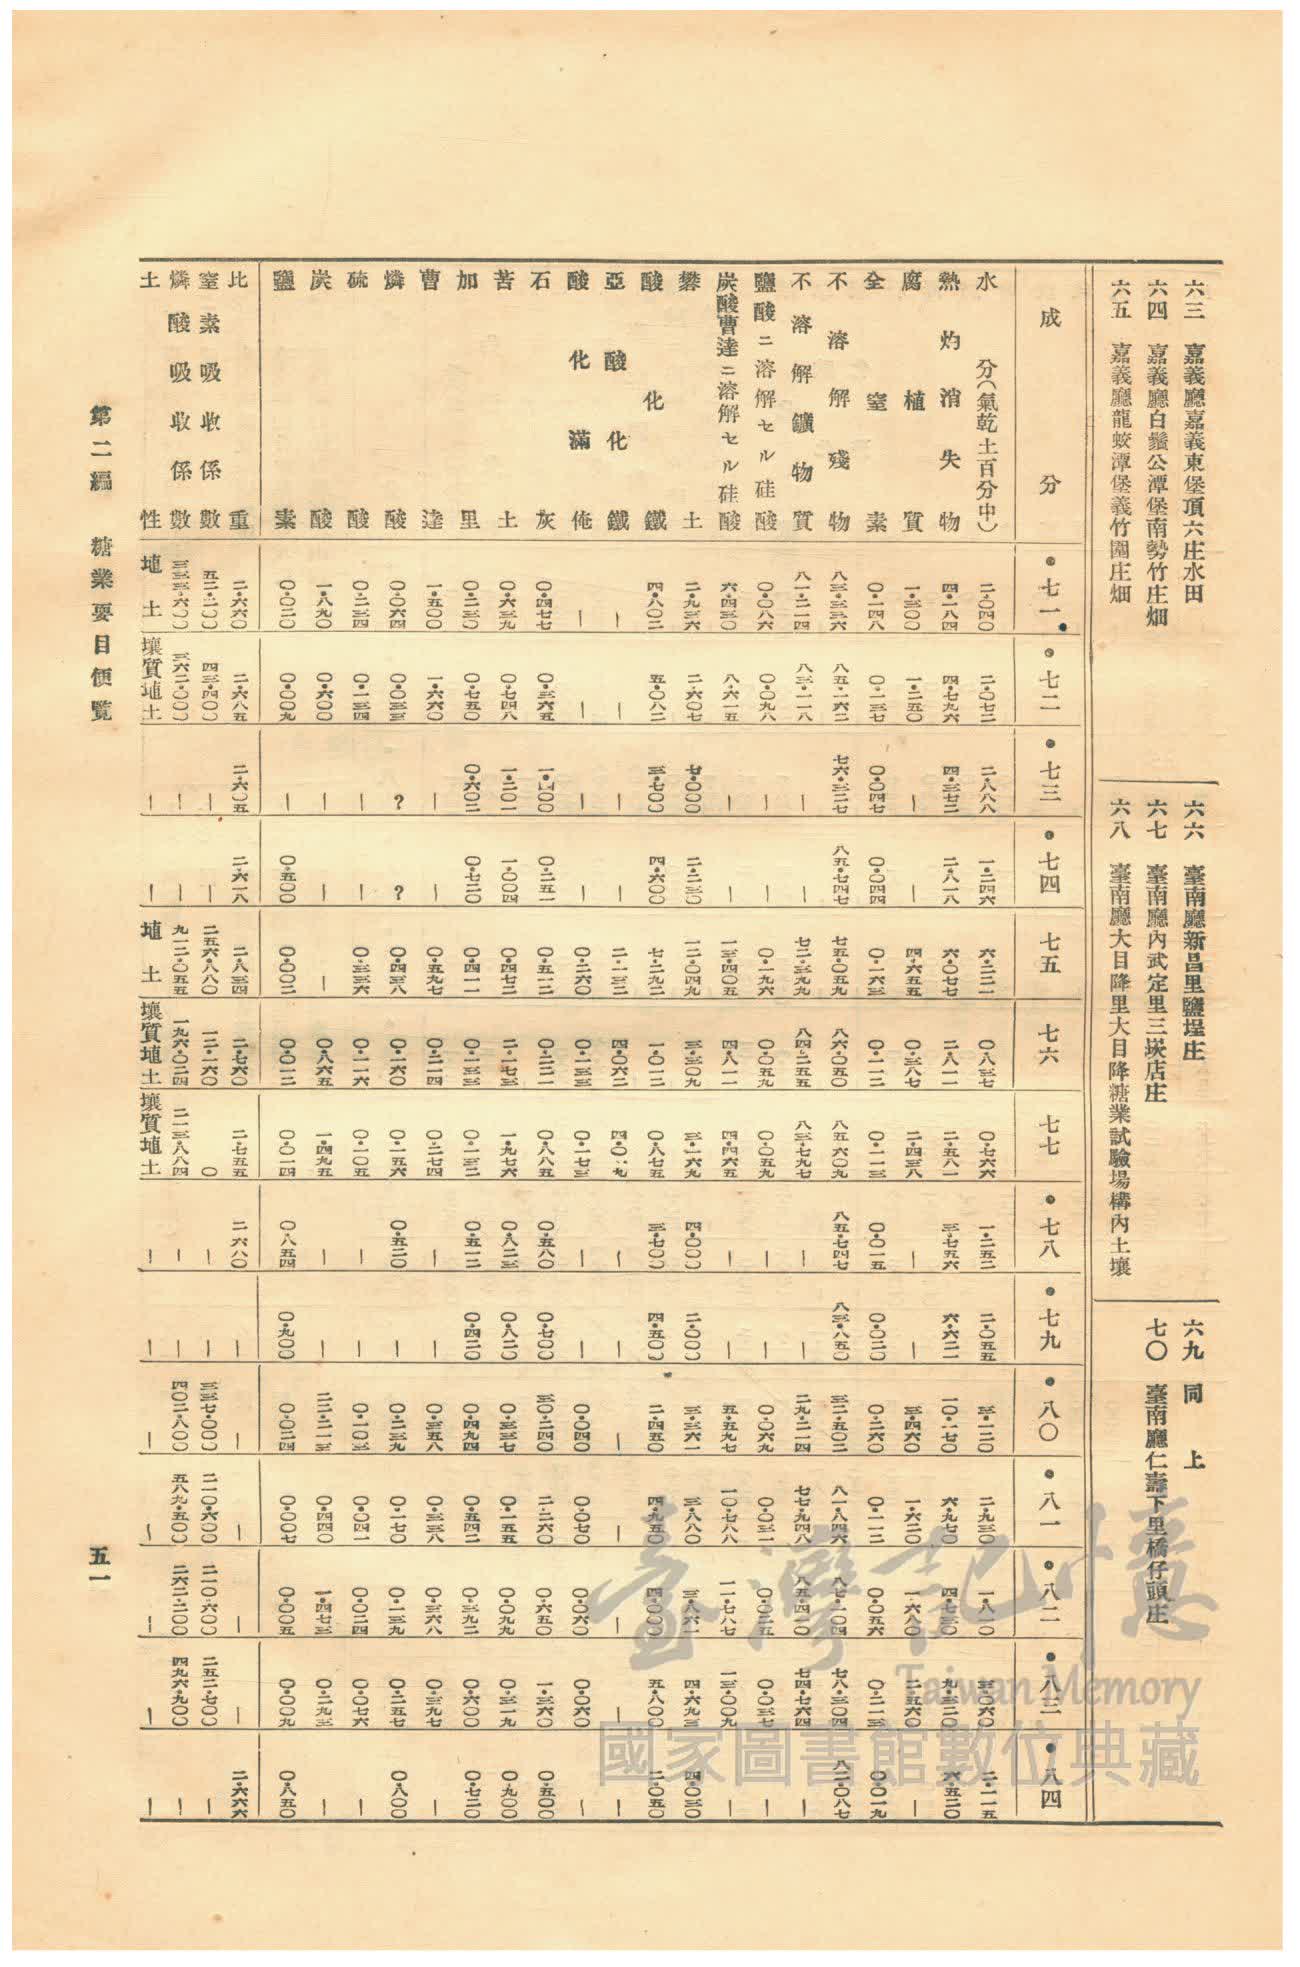 六三 嘉義廳嘉義東堡頂六庄水田
六四 嘉義廳白鬚公潭堡南勢竹庄畑
六五 嘉義廳龍蛟潭堡義竹圍庄畑
六六 臺南廳新昌里鹽埕庄
六七 臺南廳內武定里三崁店庄
六八 臺南廳大目降里大目降糖業試驗場構內土壤
六九 同上
七〇 臺南廳仁壽下里橋仔頭庄
成分 ・七一 ・七二 ・七三 ・七四 七五 七六 七七 ・七八 ・七九 ・八〇 ・八一 ・八二 ・八三 ・八四
水分(氣乾土百分中) 二・〇四〇 二・〇七二 二・八八八 一・二四六 六・二二一 〇・八三七 〇・七六六 一・二五二 二・〇五五 三・一二〇 二・九三〇 一・八一〇 三・〇六〇 二・一一五
熱灼消失物 四・一八四 四・七九六 四・三七二 二・八一八 六・〇七七 二・八一一 二・五八一 三・七五六 六・六二一 一〇・一七〇 六・九七〇 四・七三〇 九・三二〇 六・五二〇
腐植質 一・三〇〇 一・二五〇 ― ― 四・六五五 〇・三八七 二・四三八 ― ― 三・四六〇 一・六二〇 一・六八〇 二・五六〇 ―
全窒素 〇・一四八 〇・一三七 〇・〇四七 〇・〇四 〇・一六三 〇・一一二 〇・一一三 〇・〇一五 〇・〇二〇 〇・二六〇 〇・一一二 〇・〇五六 〇・二一三 〇・〇一九
不溶解殘物 八三・三三六 八五・一六二 七六・三二七 八五・七四七 七五・〇五九 八六・〇五〇 八五・六〇九 八五・七四七 八三・八五〇 三二・五〇二 八一・八四六 八七・一〇四 七八・三〇四 八二・〇八七
不溶解鑛物質 八一・二一四 八三・一一八 ― ― 七二・三九九 八四・二五五 八三・七九七 ― ― 二九・二一四 七七・九四八 八五・四二〇 七四・七六四 ―
鹽酸ニ溶解セル硅酸 〇・〇八六 〇・〇九八 ― ― 〇・一九六 〇・〇五九 〇・〇五九 ― ― 〇・〇六九 〇・〇三一 〇・〇二五 〇・〇三七 ―
炭酸曹達ニ溶解セル硅酸 六・四三〇 八・六一五 ― ― 一三・四〇五 四・八一一 四・四六五 ― ― 五・五九七 一〇・七八八 一一・七八七 一三・〇〇九 ―
礬土 二・九三六 二・六〇七 七・〇〇〇 二・二三〇 一二・〇四九 三・三〇九 三・一六九 四・〇〇〇 二・〇〇〇 三・三六一 三・八八〇 三・八六一 四・六九三 四・〇三〇
酸化鐵 四・八〇二 五・〇八二 三・七〇〇 四・六〇〇 七・二九二 一・〇一二 〇・八七五 三・七〇〇 四・五〇〇 二・四五〇 四・九五〇 四・〇〇〇 五・八〇〇 二・〇五〇
亞酸化鐵 ― ― ― ― 二・一三二 四・〇六二 四・〇・九 ― ― ― ― ― ― ―
酸化滿俺 ― ― ― ― 〇・二六〇 〇・一三三 〇・一七三 ― ― 〇・〇四〇 〇・〇七〇 〇・〇六〇 〇・〇六〇 ―
石灰 〇・四七七 〇・三六五 一・四〇〇 〇・二五一 〇・五一二 〇・二二一 〇・八八五 〇・五八〇 〇・七〇〇 三〇・二四〇 二・二六〇 〇・六五〇 一・三六〇 〇・五〇〇
苦土 〇・六三九 〇・七四八 一・二〇一 一・〇〇四 〇・四七二 二・一七三 一・九七六 〇・八二三 〇・八二〇 〇・三三七 〇・一五五 〇・〇九九 〇・三一九 〇・九〇〇
加里 〇・二三〇 〇・七五〇 〇・六〇二 〇・七二〇 〇・四一一 〇・一三三 〇・一三二 〇・五一二 〇・四二〇 〇・四九四 〇・五四二 〇・三九二 〇・六〇〇 〇・七二〇
曹達 一・五〇〇 一・六六〇 ― ― 〇・五九七 〇・二一四 〇・二七四 ― ― 〇・三五八 〇・三三八 〇・三六八 〇・三九七 ―
燐酸 〇・〇六四 〇・〇三三 ? ? 〇・四三八 〇・一六〇 〇・一五六 〇・五二〇 ― 〇・二三九 〇・一七〇 〇・一三九 〇・二五七 〇・八〇〇
硫酸 〇・二三四 〇・一三四 ― ― 〇・三三六 〇・一一六 〇・一〇五 ― ― 〇・一〇三 〇・〇四一 〇・〇二四 〇・〇七六 ―
炭酸 一・八九〇 〇・六〇〇 ― ― ― 〇・八六五 一・四九五 ― ― 二二・二一三 〇・四四〇 一・四七三 〇・二九三 ―
鹽素 〇・〇二〇 〇・〇〇九 ― 〇・五〇〇 〇・〇〇二 〇・〇一二 〇・〇一四 〇・八五四 〇・九〇〇 〇・〇二四 〇・〇〇七 〇・〇〇五 〇・〇〇九 〇・八五〇
比重 二・六六〇 二・六八五 二・六〇五 二・六一八 二・八三四 二・七六〇 二・七五五 二・六八〇 ― ― ― ― ― 二・六六六
窒素吸收係數 五二・二〇〇 四三・四〇〇 ― ― 二五六・八八〇 一二・一六〇 〇 ― ― 三三七・〇〇〇 二一〇・六〇〇 二一〇・六〇〇 二五二・七〇〇 ―
燐酸吸收係數 三三三・六〇〇 三六二・〇〇〇 ― ― 九一二・〇五五 一九六・〇二四 二一三・八八四 ― ― 四〇二・八〇〇 五八九・五〇〇 二六二・二〇〇 四九六・九〇〇 ―
土性 埴土 壤質埴土 ― ― 埴土 壤質埴土 壤質埴土 ― ― ― ― ― ― ―
第二編 糖業要目便覽
五一
臺灣記憶
Taiwan Memory
國家圖書館數位典藏